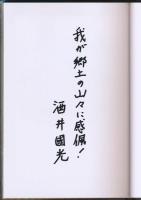 我が郷土の山々に感佩!
酒井國光